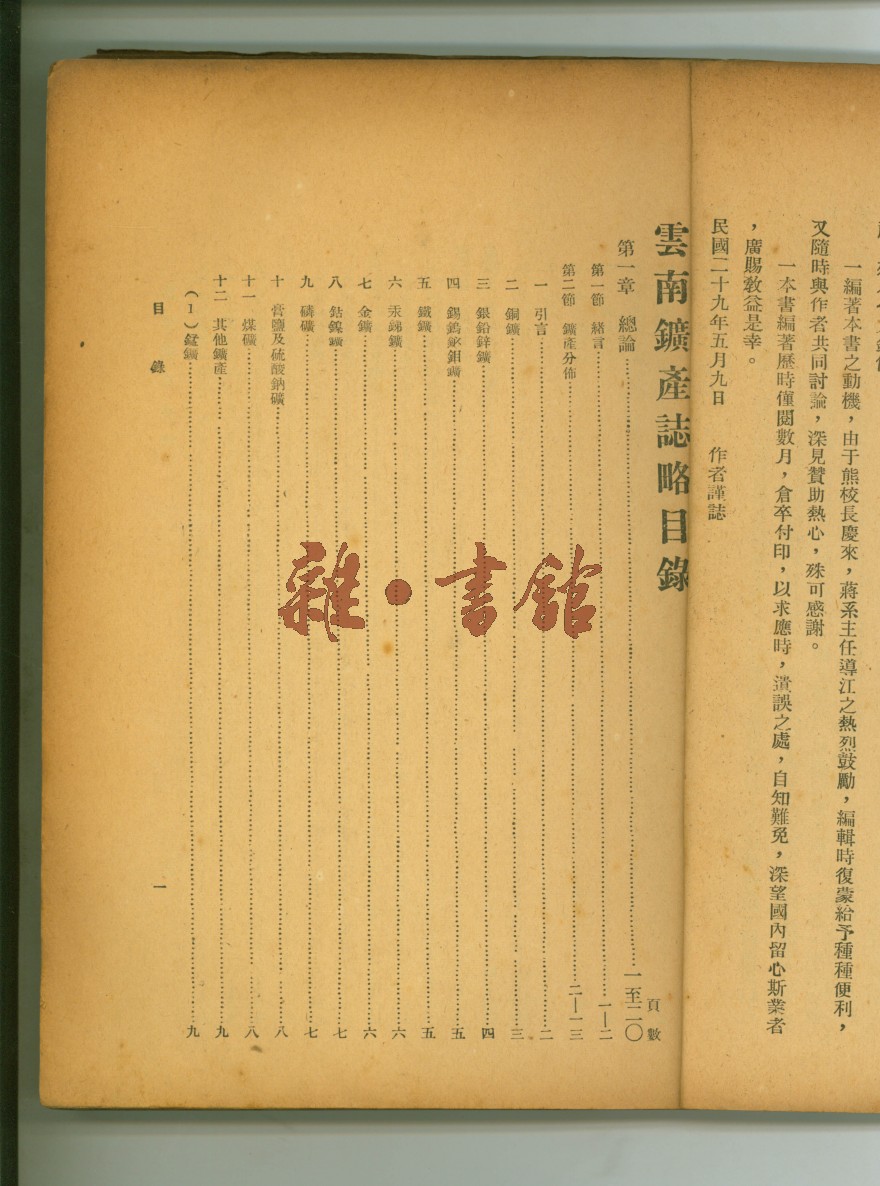 一編著本書之動機，由于熊校長慶來，蔣系主任導江之熱烈鼓勵，編輯時復蒙給予種種便利，
又隨時與作者共同討論，深見贊助熱心，殊可感謝。
一本書編著歷時僅閱數月，倉卒付印，以求應時，遺誤之處，自知難免，深望國內留心斯業者
，廣賜教益是幸。
民國二十九年五月九日　作者謹誌
雲南鑛產誌略目錄
頁數
第一章　總論……一至二〇
第一節　緒言……一—二
第二節　鑛產分佈……二—一三
一　引言……二
二　銅鑛……三
三　銀鉛鋅鑛……四
四　錫鎢鉍鉬鑛……五
五　鐵鑛……五
六　汞銻鑛……六
七　金鑛……六
八　鈷鎳鑛……七
九　磷鑛……七
十　膏鹽及硫酸鈉鑛……八
十一　煤鑛……八
十二　其他鑛產……九
（1）錳鑛……九
目錄
一
雜·書館